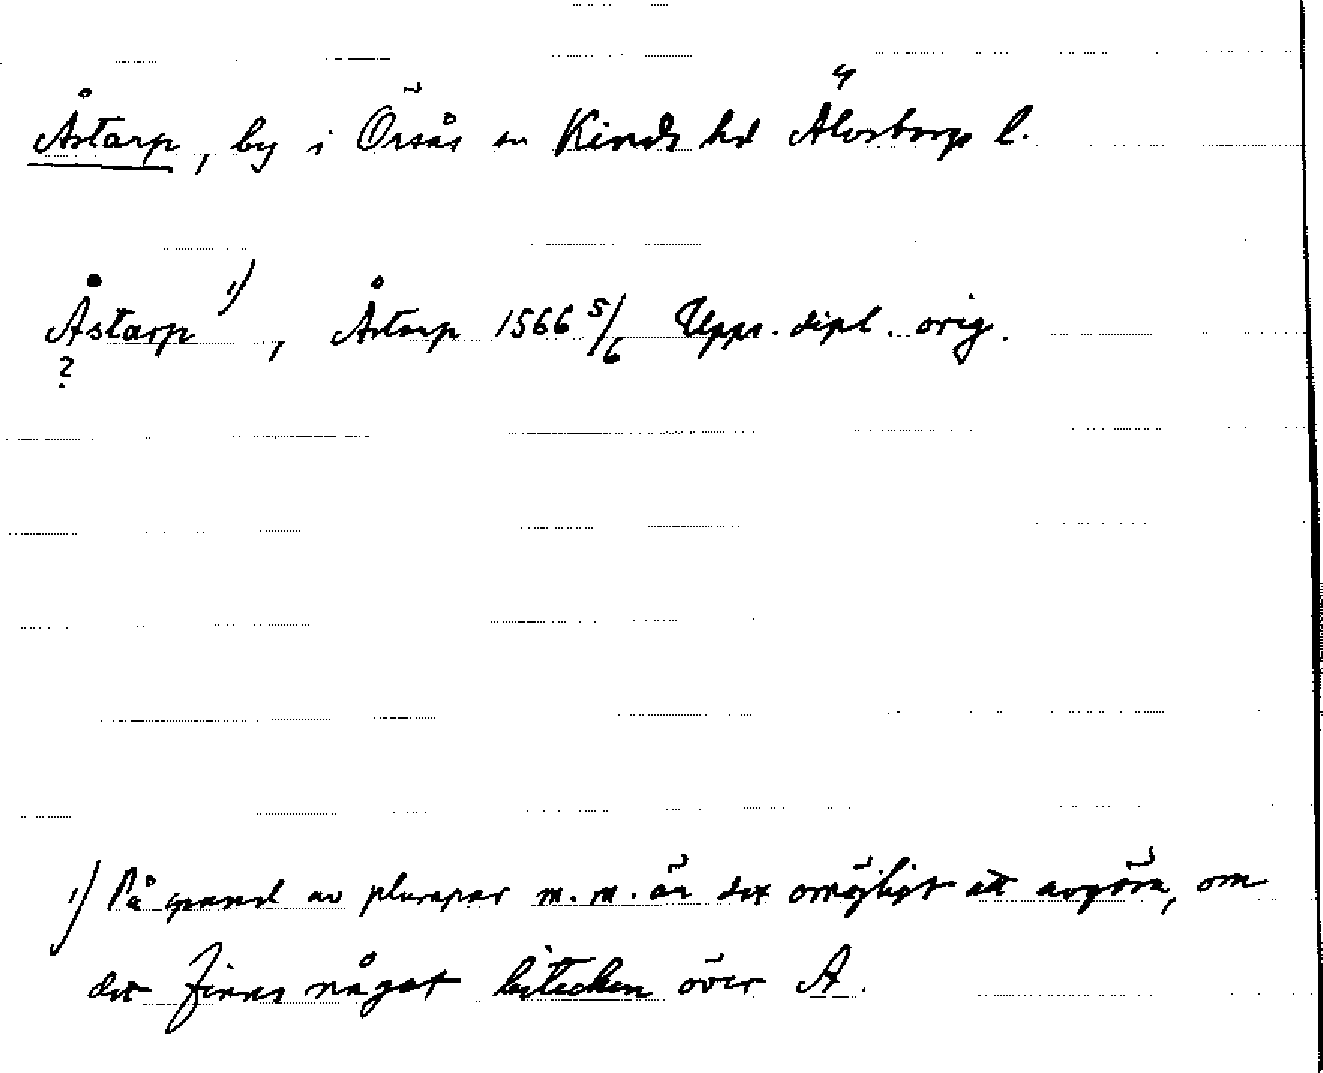 Åstarp, by i Örsås sn Kinds hd Älvsborgs l.
Åstarp ¹⁾, Åstarp 1566 5/6 Upps. dipl. orig.
?
¹⁾ På grund av plumpar m.m. är det omöjligt att avgöra, om
det finns något bitecken över A.